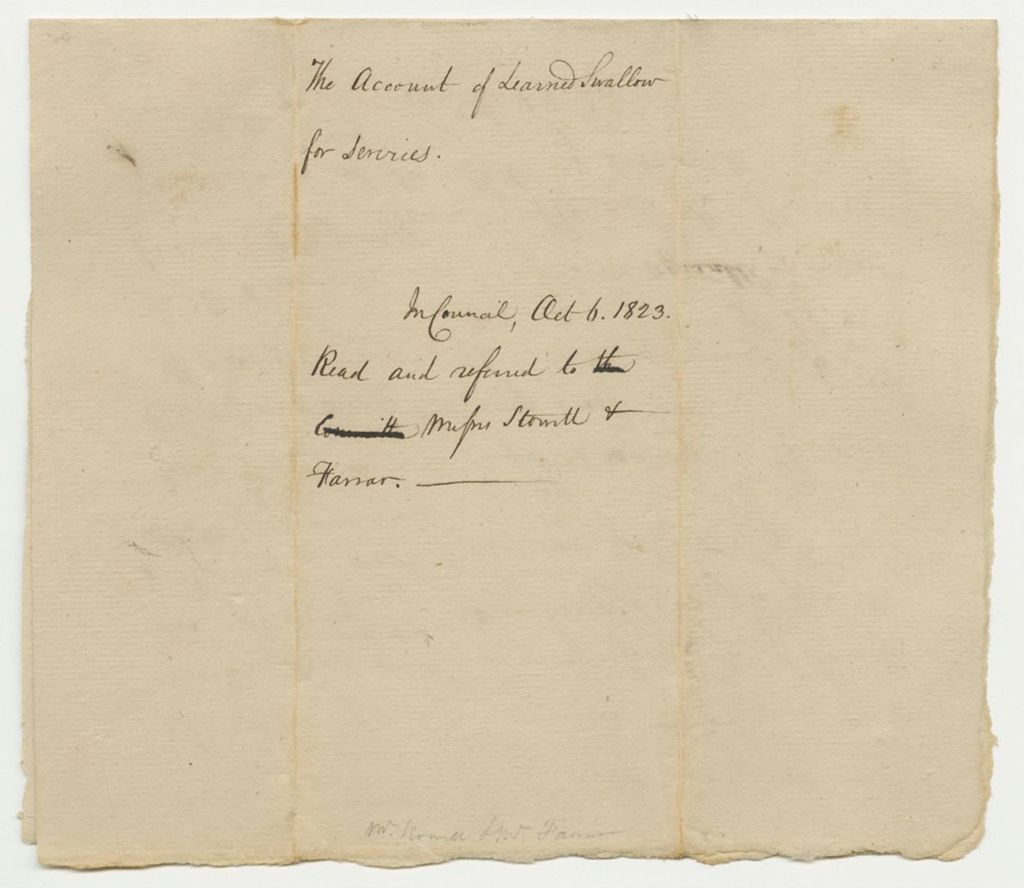 The Account of Learned Swallow
for Services.
In Council, Oct 6. 1823.
Read and referred to the
Committ Messrs Stowell &
Farrar.
Mr. & Mr. Farrar